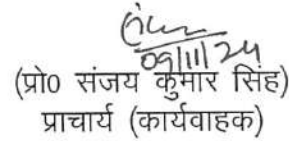 09/11/24
(प्रो0 संजय कुमार सिंह)
प्राचार्य (कार्यवाहक)